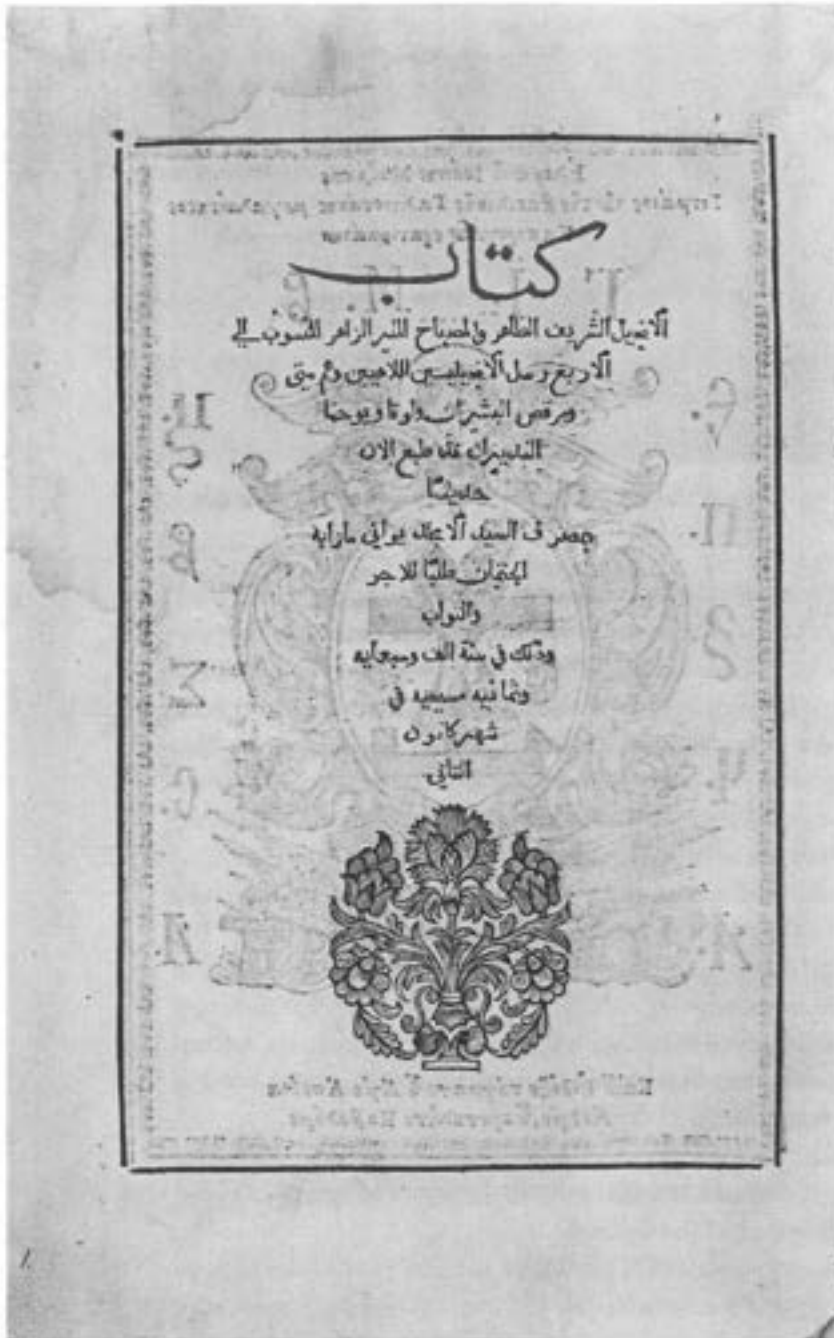 كتاب
الانجيل الشريف الطاهر والمصباح المنير الزاهر المنسوب الي
الاربع رسل الانجيليين اللاهيين وهم متي
ومرقص البشيران ولوقا ويوحنا
قد طبع الان
حديثا
بمصرف السيد الامجد يواني مازابه
طلبا للاجر
والثواب
وذلك في سنة الف وسبعمايه
وثمانيه مسيحيه في
شهر كانون
الثاني